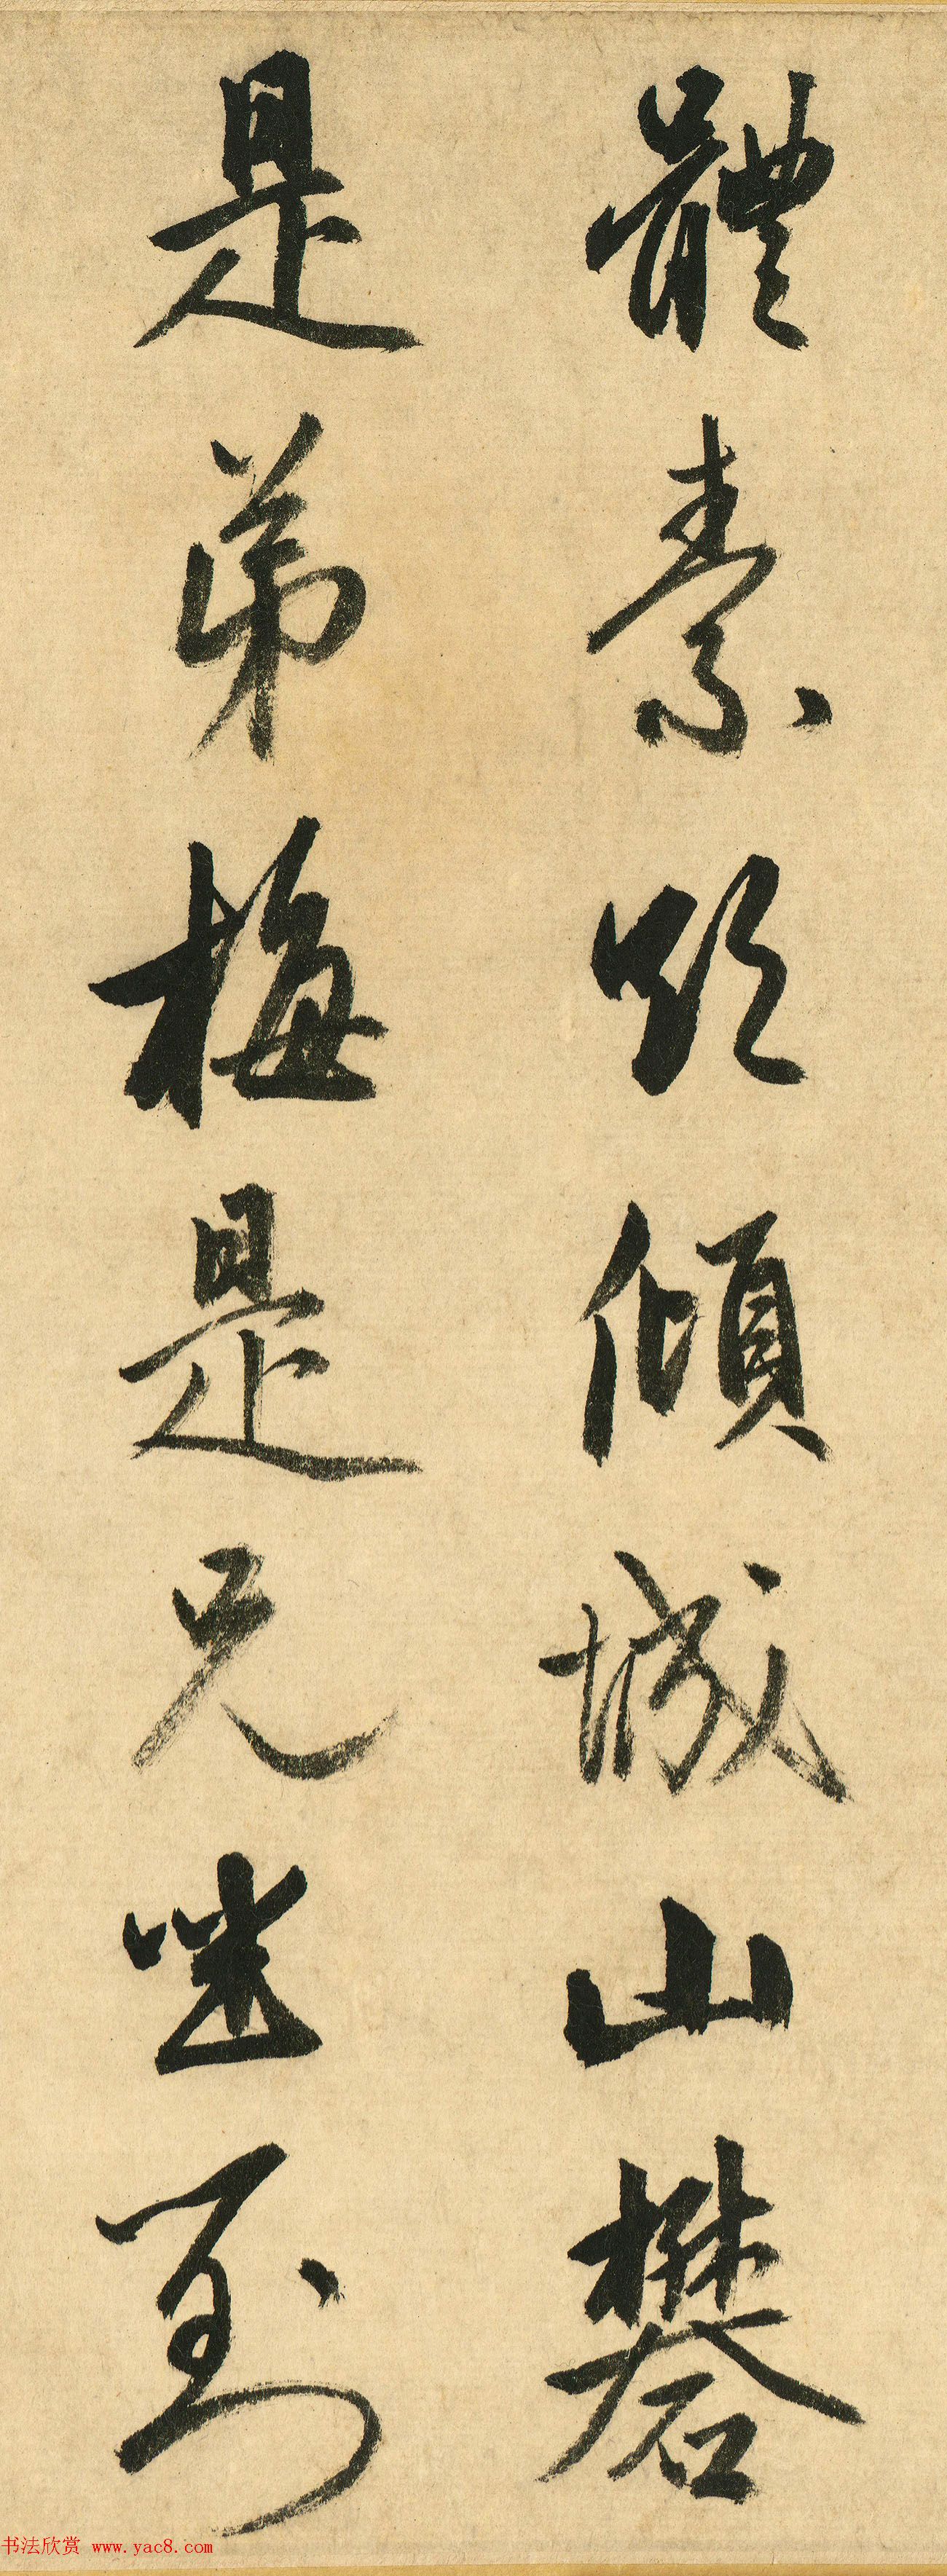 體素欲傾城山礬
是弟梅是兄坐對
书法欣赏 www.yac8.com